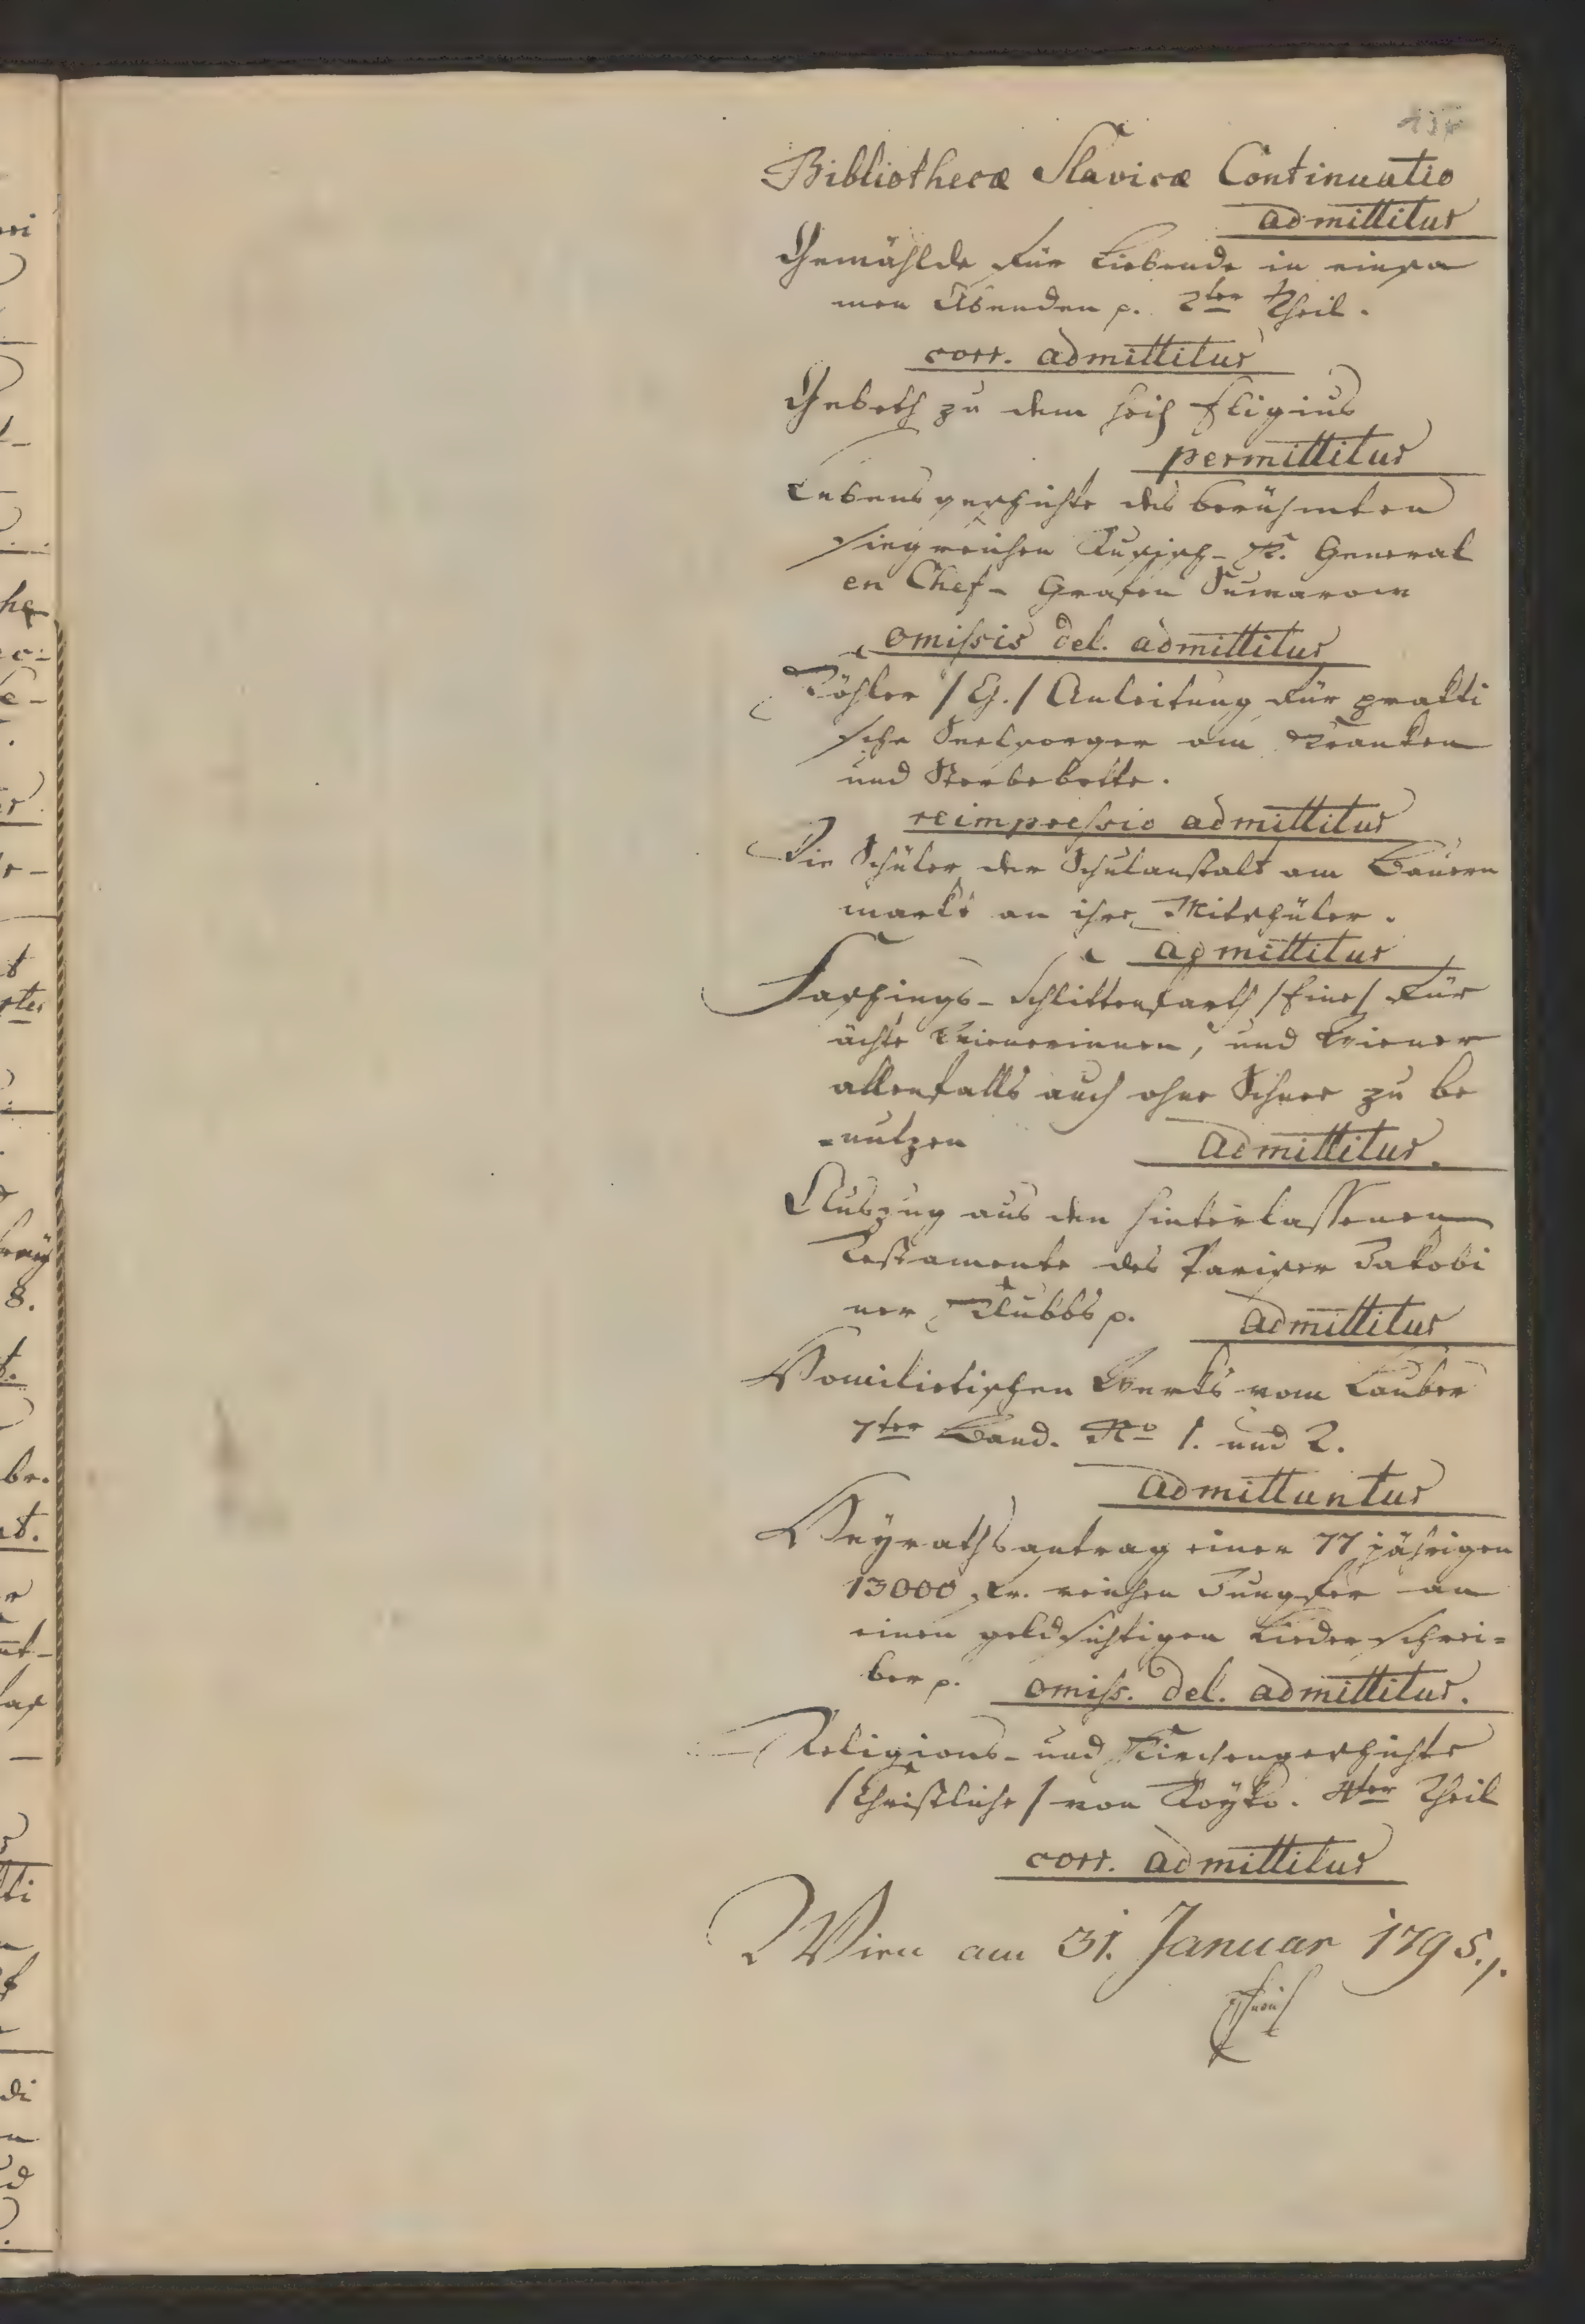 134
Bibliothecæ Slavicæ Continuatio
admittitur
Gemählde für Liebende in einsa
men Abenden p. 2ter Theil.
corr. admittitur
Gebeth zu dem heil. Eligius
permittitur
Lebensgeschichte des berühmten
siegreichen Russisch-K. General
en Chef- Grafen Suwarow
omissis del. admittitur
Köhler /G./ Anleitung für prakti
sche Seelsorger am Kranken
und Sterbebette.
reimpressio admittitur
Die Schüler der Schulanstalt am Bauern
markt an ihre Mitschüler.
admittitur
Faschings-Schlittenfarth /Eine/ für
ächte Wienerinnen, und Wiener
allenfalls auch ohne Schnee zu be
=nutzen admittitur.
Auszug aus den hinterlassenen
Testamente des Pariser Jakobi
ner Klubbs p. admittitur
Homiletischen Werks vom Lauber
7ter Band. No 1. und 2.
admittuntur
Heyrathsantrag einer 77 jährigen
13000 fr. reichen Jungfer an
einen geldsüchtigen Liederschrei=
ber p. omiss. del. admittitur.
Religions- und Kirchengeschichte
/Christliche/ von Royko. 4ter Theil
corr. admittitur
Wien am 31. Januar 1795.